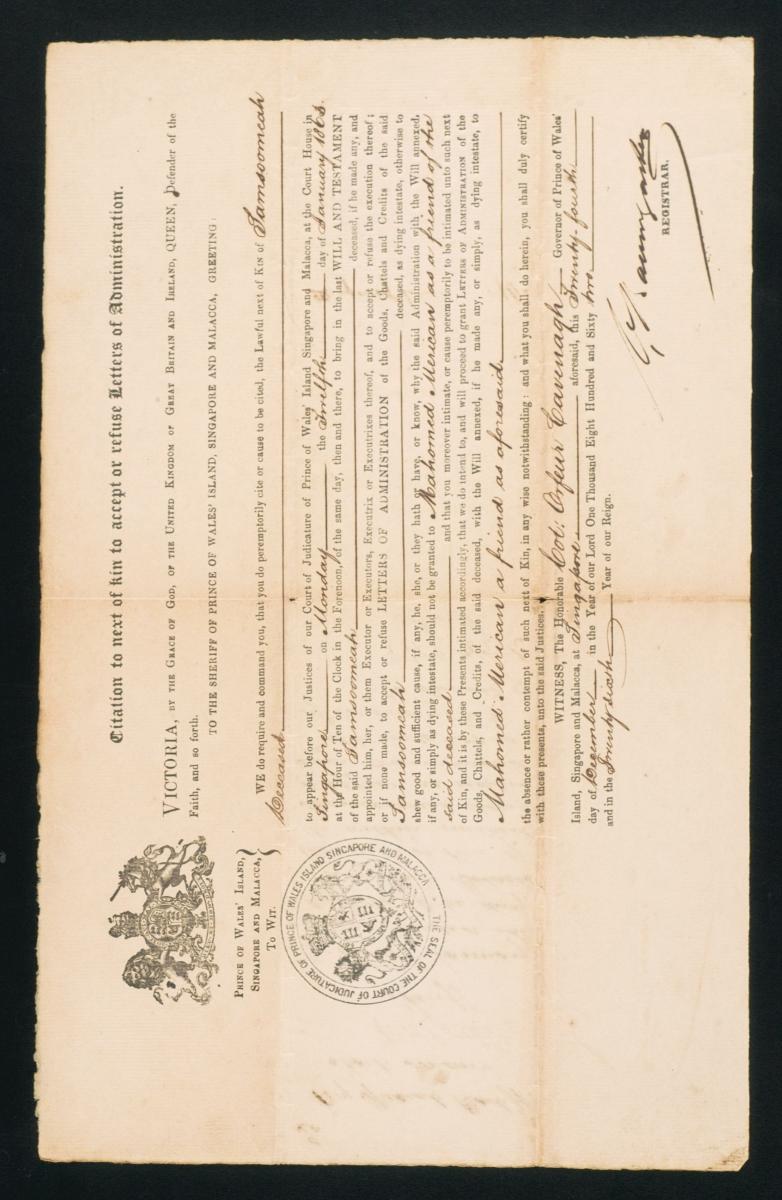 Citation to next of kin to accept or refuse Letters of Administration.
PRINCE OF WALES' ISLAND,
SINGAPORE AND MALACCA,
TO WIT.
THE SEAL OF THE COURT OF JUDICATURE OF PRINCE OF WALES ISLAND SINGAPORE AND MALACCA
VICTORIA, BY THE GRACE OF GOD, OF THE UNITED KINGDOM OF GREAT BRITAIN AND IRELAND, QUEEN, Defender of the
Faith, and so forth.
TO THE SHERIFF OF PRINCE OF WALES' ISLAND, SINGAPORE AND MALACCA, GREETING:
WE do require and command you, that you do peremptorily cite or cause to be cited, the Lawful next of KIN of Samsoomeah
Deceased
to appear before our Justices of our Court of Judicature of Prince of Wales' Island Singapore and Malacca, at the Court House in
Singapore on Monday the Twelfth day of January 1863.
at the Hour of Ten of the Clock in the Forenoon, of the same day, then and there, to bring in the last WILL AND TESTAMENT
of the said Samsoomeah deceased, if he made any, and
appointed him, her, or them Executor or Executors, Executrix or Executrixes thereof, and to accept or refuse the execution thereof;
or if none made, to accept or refuse LETTERS OF ADMINISTRATION of the Goods, Chattels and Credits of the said
Samsoomeah deceased, as dying intestate, otherwise to
shew good and sufficient cause, if any, he, she, or they hath or have, or know, why the said Administration with the Will annexed,
if any, or simply as dying intestate, should not be granted to Mahomed Merican as a friend of the
said deceased and that you moreover intimate, or cause peremptorily to be intimated unto such next
of Kin, and it is by these Presents intimated accordingly, that we do intend to, and will proceed to grant LETTERS OF ADMINISTRATION of the
Goods, Chattels, and Credits, of the said deceased, with the Will annexed, if he made any, or simply, as dying intestate, to
Mahomed Merican a friend as aforesaid
the absence or rather contempt of such next of Kin, in any wise notwithstanding: and what you shall do herein, you shall duly certify
with these presents, unto the said Justices.
WITNESS, The Honorable Col: Orfeur Cavenagh Governor of Prince of Wales'
Island, Singapore and Malacca, at Singapore aforesaid, this Twenty fourth
day of December in the Year of our Lord One Thousand Eight Hundred and Sixty two
and in the Twenty sixth Year of our Reign.
REGISTRAR.